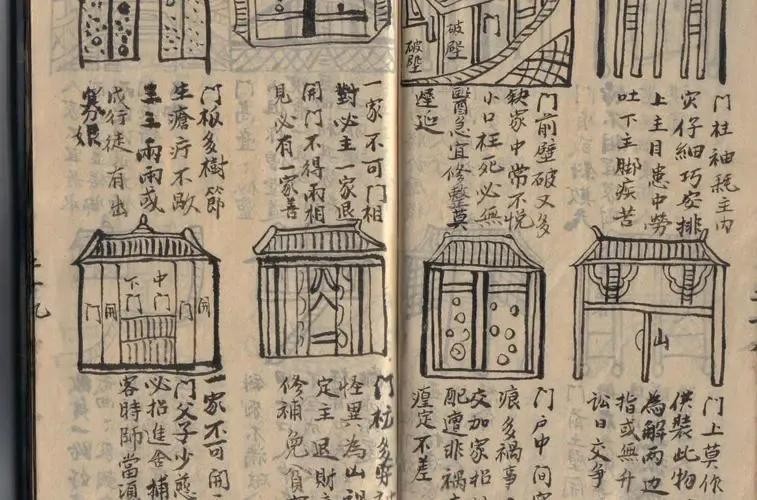 破壁
破壁
门
门柱 主内
灾仔細巧安排
上主目患中勞
吐下主脚疾苦
门前壁破又多
缺家中常不悦
小口枉死必無
醫急宜修整莫
遲延
一家不可门相
對必主一家退
開门不得兩相
見必有一家善
门板多樹節
生瘡疔不歇
三三兩兩或
成行徒有出
山
開
门
中门
下门
開
门
门上莫作
供裝此物
為解两边
指或無升
訟日交爭
门户中间
痕多禍事
交加家招
配遭非禍
定不差
门 多
怪異為山
定主退財
修補免負
一家不可開
门父子少慈
必招進舍捕
客時師當須